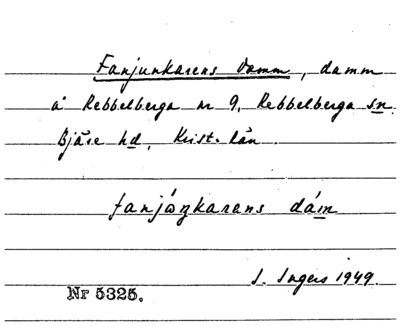 Fanjunkarens Damm, damm
å Rebbelberga nr 9, Rebbelberga sn.
Bjäre hd, Krist. län.
fanjòŋkarans dám
I. Ingers 1949.
Nr 5325.